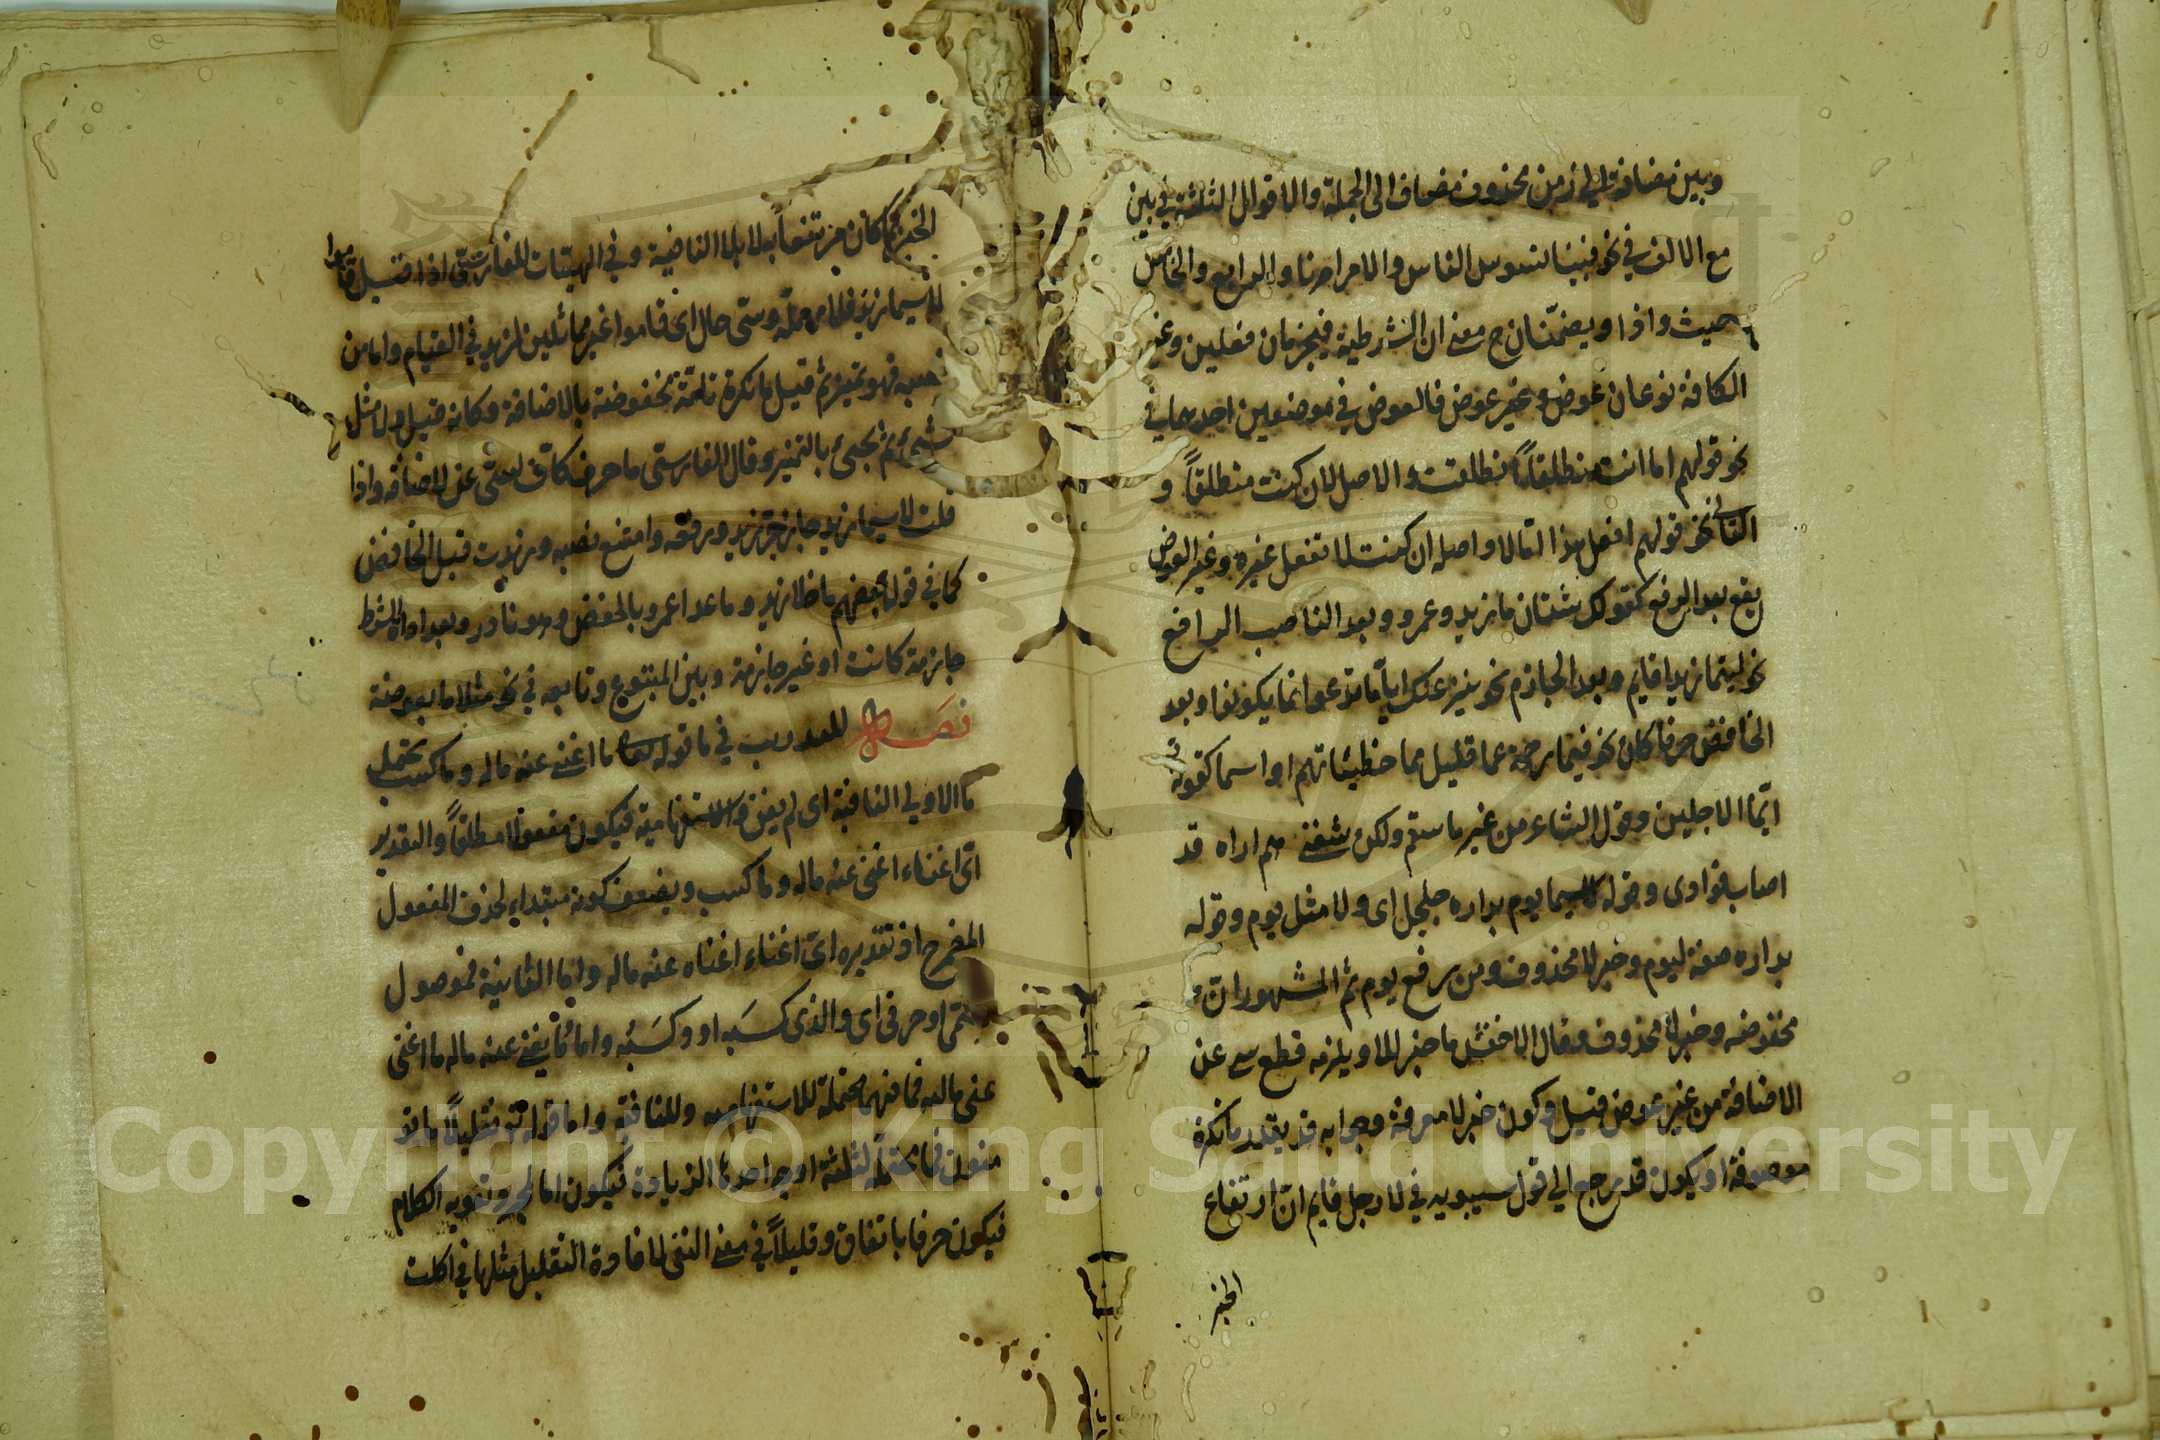 وبين مضافة الى زمن محذوف مضاف الى الجملة والاقوال الثلثة في بين
مع الالف في نحو فبينا نسوس الناس والامر امرنا والرابع والخامس
حيث واذا ويضمّنان ح معنى ان الشرطية فيجزمان فعلين وغير
الكافة نوعان عوض وغير عوض فالعوض في موضعين احدهما في
نحو قولهم اما انت منطلقاً انطلقت والاصل لان كنت منطلقاً و
الثاني نحو قولهم افعل هذا امّا لا واصله ان كنت لا تفعل غيره وغير العوض
يقع بعد الرفع كقولك شتان ما زيد وعمرو وبعد الناصب الرافع
نحو ليتما زيدا قايم وبعد الجازم نحو ينزغنك ايّاما تدعوا اينما تكونوا وبعد
الخافض حرفا كان نحو فبما رحمة عما قليل مما خطيئاتهم او اسما كقوله تع
ايّما الاجلين وقول الشاعر من غير ما سقم ولكن شفني هم اراه قد
اصاب فوادى وقوله لاسيما يوم بداره جلجل اى ولا مثل يوم وقوله
بداره صفة ليوم وخبر لا محذوف ومن رفع يوم ثم المشهور ان
مخفوضه وخبر لا محذوف وقال الاخفش ما خبر للا ويلزمه قطع سى عن
الاضافة من غير عوض قيل وكون خبر لا معرفة وجوابه قد يقدر ما نكرة
موصوفة او يكون قد رجع الى قول سيبويه في لا رجل قايم ان ارتفاع
الخبر
الخبر بما كان مرتفعاً به لا بلا النافية وفي الهيتات للفارسىّ اذا قيل قاموا
لاسيما زيد فلا مهملة وسى حال اى قاموا غير مماثلين لزيد في القيام واما من
نصبه فهو تمييز ثم قيل ما نكرة تامّة مخفوضة بالاضافة وكانه قيل ولا مثل
شئ ثم جئ بالتمييز وقال الفارسى ما حرف كافّ لسىّ عن الاضافه واذا
قلت لاسيما زيد جاز جرّ زيد ورفعه وامتنع نصبه وزيدت قبل الخافض
كما في قول بعضهم ما خلا زيد وما عدا عمرو بالخفض وهو نادر وبعد اداة الشرط
جازمة كانت او غير جازمة وبين المتبوع وتابعه في نحو مثلا ما بعوضة
فصل للتدريب في ما قوله تعالى ما اغنى عنه ماله وما كسب تحتمل
ما الاولى النافية اى لم يغن والاستفهامية فيكون مفعولا مطلقاً والتقدير
اىّ اغناء اغنى عنه ماله وما كسب ويضعف كونه مبتداء لحذف المفعول
المضمر ح اذ تقديره اىّ اغناء اغناه عنه ماله وامّا الثانية فموصول
اسمىّ او حرفى اى والذى كسَبه او وكسَبُه واما ما يغنى عنه ماله ما اغنى
عنى ماليه فما فيهما محتملة للاستفهاميه وللنافية واما قوله تع فقليلاً ما يو
منون فما محتمله لثلثة اوجه احدها الزيادة فيكون اما لمجرد تقويه الكلام
فيكون حرفا باتفاق وقليلاً في معنى النفى لافادة التقليل مثلها في اكلت
Copyright © King Saud University